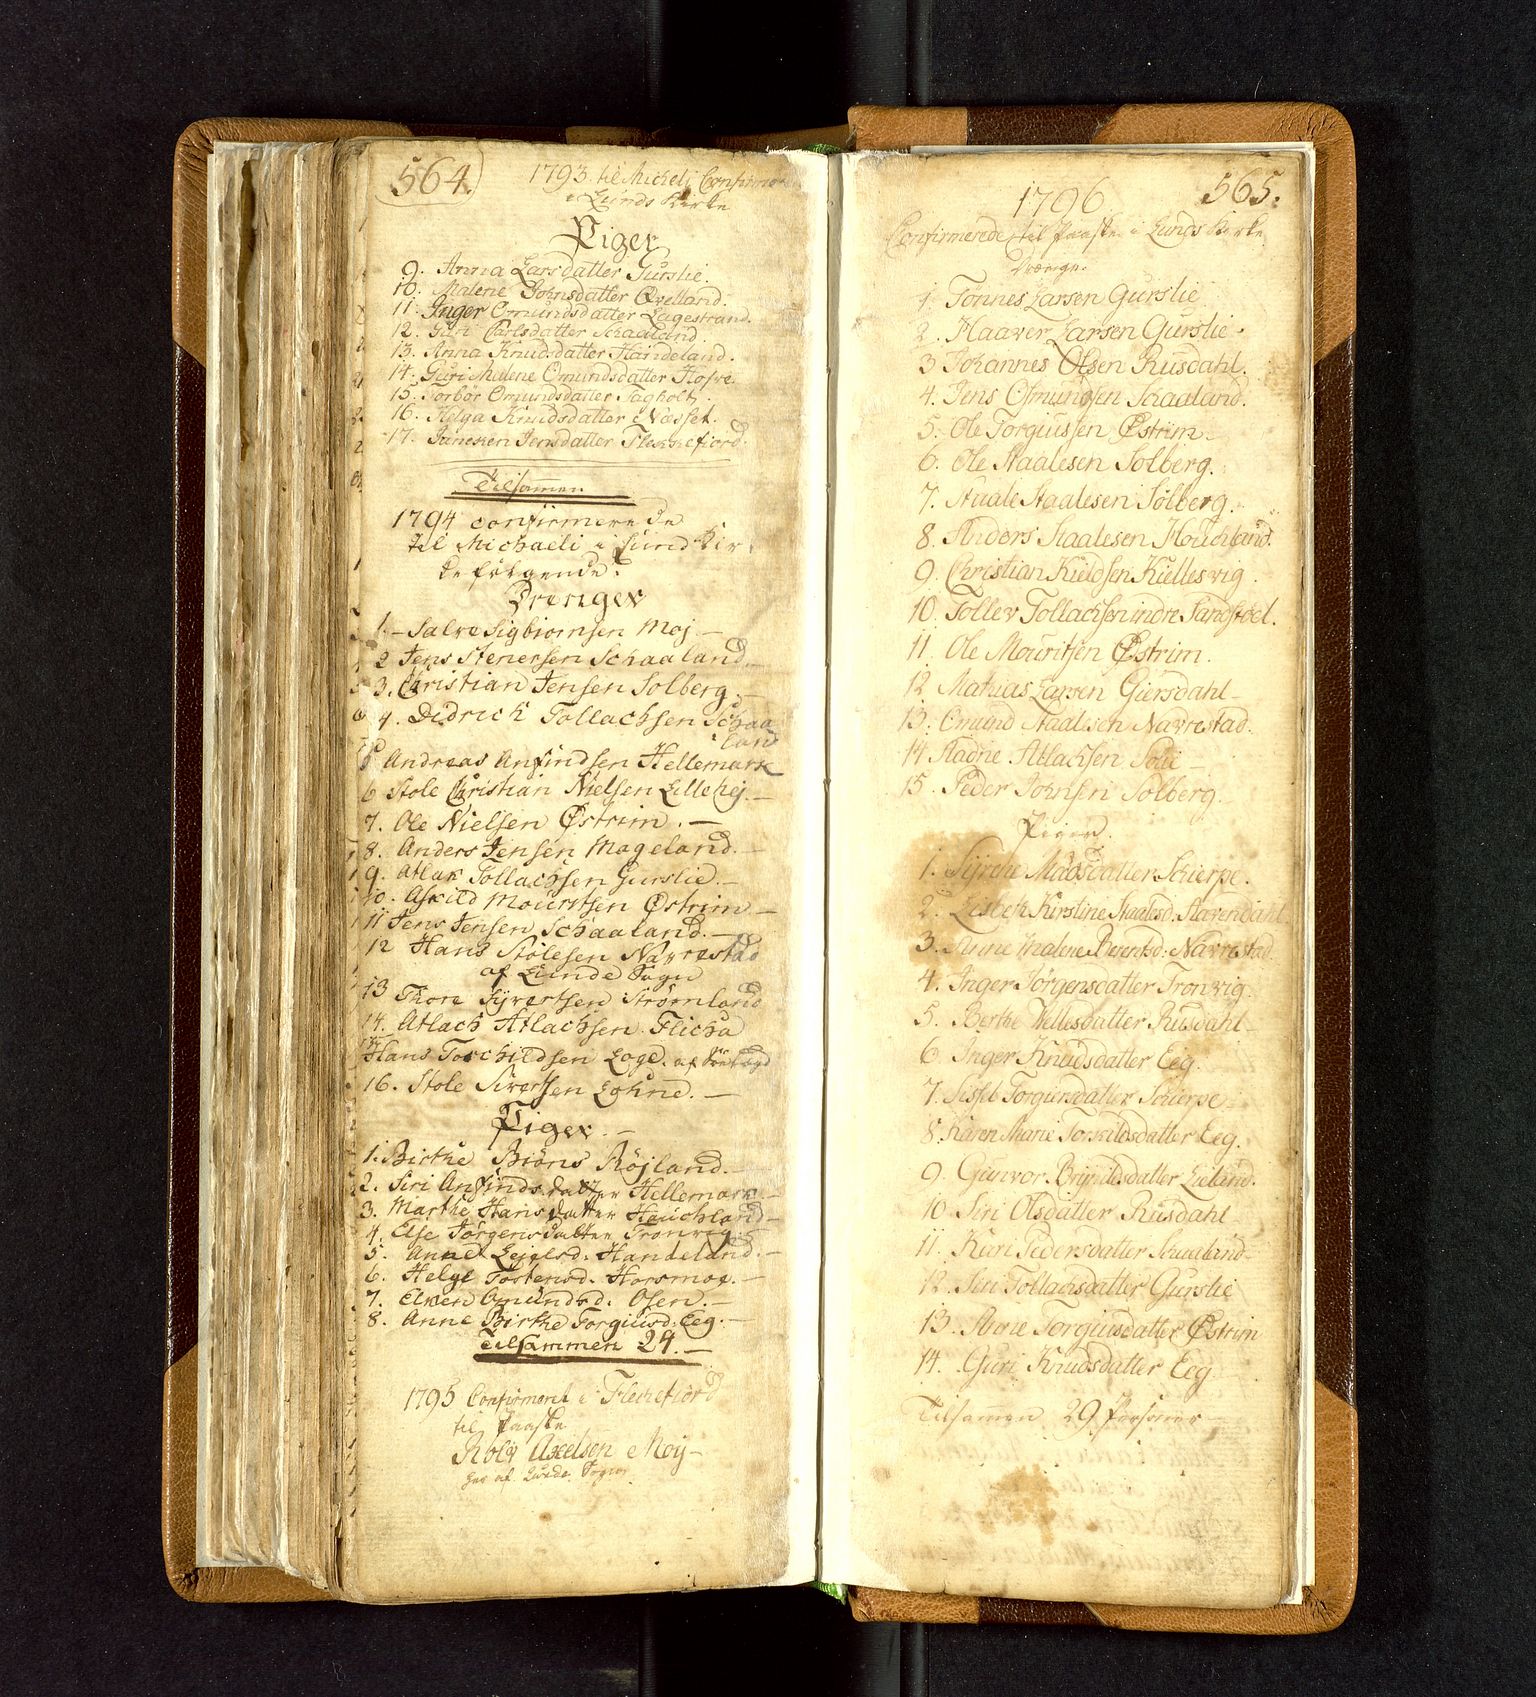 564.
1793. til Micheli Confirme
i Lunds Kirke
Piger
9. Anna Larsdatter Gurslie.
10. Malene Johnsdatter Qvelland.
11. Inger Omundsdatter Eagestrand.
12. Guri Carlsdatter Skaaland.
13. Anna Knudsdatter Handeland.
14. Guri Malene Omundsdatter Hofve.
15. Torbor Omundsdatter Fagholt.
16. Helga Knudsdatter Næsset.
17. Janeken Jensdatter Flekkefiord.
Tilsamen
1794 confirmerede
til Michaeli i Lund Kir
ke følgende:
Drenger
1. Salve Sigbiornsen Moj.
2 Jens Stenersen Schaaland.
3. Christian Jensen Solberg.
4. Didrich Tollachsen Schaa
land
5 Andreas Anfindsen Hellemark
6 Stole Christian Nielsen Lillehej.
7. Ole Nielsen Østrim.
8. Anders Jensen Mageland.
9. Atlak Tollachsen Gurslie.
10. Askild Mouritsen Østrim
11 Jens Jensen Schaaland.
12 Hans Stolesen Navrestad
af Lunde Sogn
13 Thore Syvertsen Strømland
14. Atlach Atlachsen Flicha
Hans Torchildsen Loge. af
16. Stole Sivertsen Eghne.
Piger.
1. Birthe Biørns Røjland.
2. Siri Anfindsdatter Hellemark
3. Marthe Hansdatter Houchland
4. Else Jørgensdatter Tronvig
5. Anne Lejelsd. Handeland.
6. Helge Tostensd. Horsmoe.
7. Elken Omundsd. Osen.
8. Anne Birthe Torgiusd. Eeg.
Tilsammen 24.
1795 Confirmeret i Flekkefiord
til Paaske
Roly Axelsen Moij
her af Lunde Sogn
565.
1796
Confirmerede til Paaske i Lunds Kirke
Drænge.
1. Tønnes Larsen Gurslie
2. Haaver Larsen Gurslie
3 Johannes Olsen Rusdahl.
4. Jens Osmundsen Skaaland.
5. Ole Torgiussen Østrim
6. Ole Staalesen Solberg.
7. Staale Staalesen Solberg.
8. Anders Staalesen Houchland.
9. Christian Kieldsen Kiellesvig.
10. Tollev Tollachsen indre Sandstoel.
11. Ole Mouritsen Østrim.
12 Mathias Larsen Giersdahl
13. Omund Staalesen Navrestad.
14 Aadne Atlachsen Polie
15. Peder Johnsen Solberg.
Piger.
1. Syrche Madsdatter Schierpe.
2. Lisbeth Kirstine Staalesd. Stavendahl
3. Anne Malene Berentsd. Navrestad
4. Inger Jørgensdatter Tronvig.
5. Berthe Vellesdatter Rusdahl
6. Inger Knudsdatter Eeg.
7. Sissel Torgiersdatter Schierpe
8. Karen Marie Torkildsdatter Eeg.
9. Gunvor Bryndilsdatter Lieland.
10 Siri Olsdatter Rusdahl
11. Kari Pedersdatter Skaaland
12. Siri Tollachsdatter Gurslie
13. Anne Torgiusdatter Østrim
14. Guri Knudsdatter Eeg
Tilsamen 29 Personer